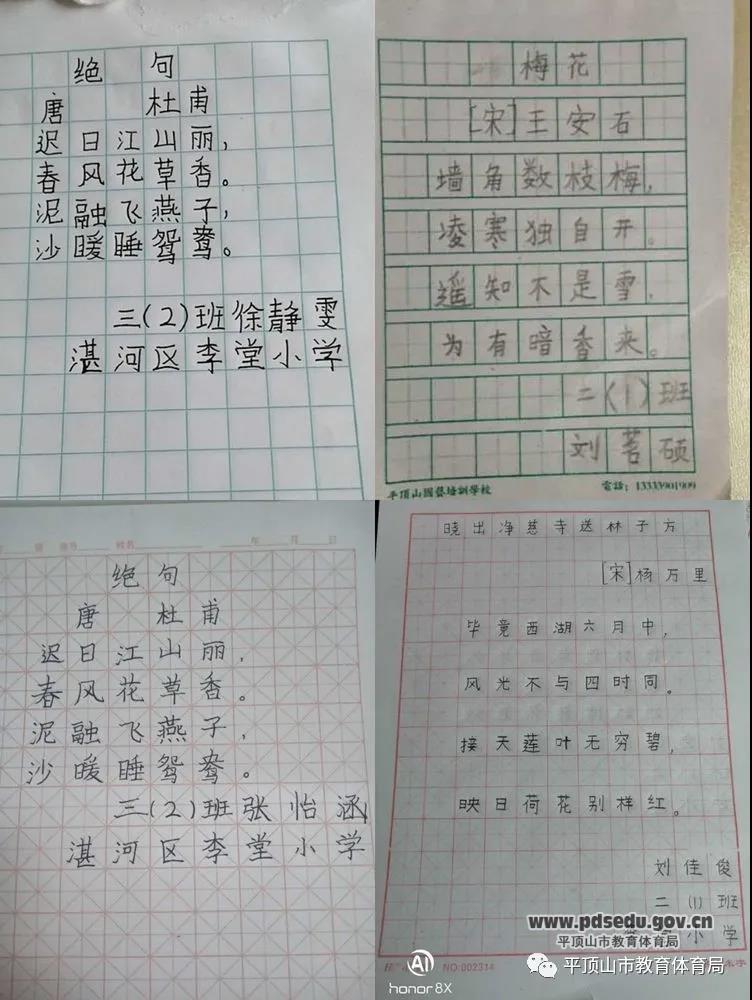 绝 句
唐 杜甫
迟日江山丽，
春风花草香。
泥融飞燕子，
沙暖睡鸳鸯。
三(2)班徐静雯
湛河区李堂小学
梅花
[宋]王安石
墙角数枝梅，
凌寒独自开。
遥知不是雪，
为有暗香来。
二(1)班
刘茗硕
平顶山国睿培训学校 电话：13333901909
绝句
唐 杜甫
迟日江山丽，
春风花草香。
泥融飞燕子，
沙暖睡鸳鸯。
三(2)班张怡涵
湛河区李堂小学
年 月 日
晓出净慈寺送林子方
[宋]杨万里
毕竟西湖六月中，
风光不与四时同。
接天莲叶无穷碧，
映日荷花别样红。
刘佳俊
二(1)班
小学
NO:002314
www.pdsedu.gov.cn
平顶山市教育体育局
平顶山市教育体育局
AI
honor 8X